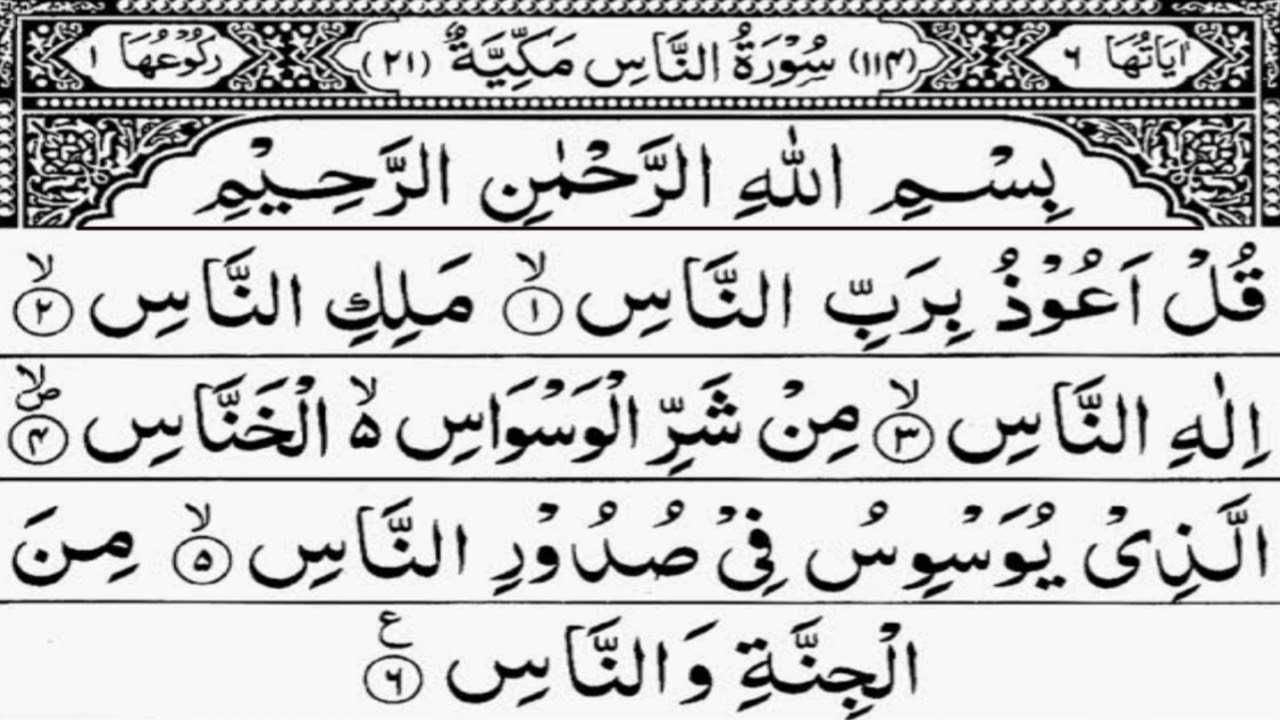 اٰيَاتُهَا ٦ (١١۴) سُوْرَةُ النَّاسِ مَكِّيَّةٌ (٢١) رُكُوْعُهَا ١
بِسْمِ اللّٰهِ الرَّحْمٰنِ الرَّحِيْمِ
قُلْ اَعُوْذُ بِرَبِّ النَّاسِ ۙ﴿١﴾ مَلِكِ النَّاسِ ۙ﴿٢﴾
اِلٰهِ النَّاسِ ۙ﴿٣﴾ مِنْ شَرِّ الْوَسْوَاسِ ۵ۙ الْخَنَّاسِ ۙص﴿۴﴾
الَّذِىْ يُوَسْوِسُ فِىْ صُدُوْرِ النَّاسِ ۙ﴿۵﴾ مِنَ
الْجِنَّةِ وَالنَّاسِ ع﴿٦﴾